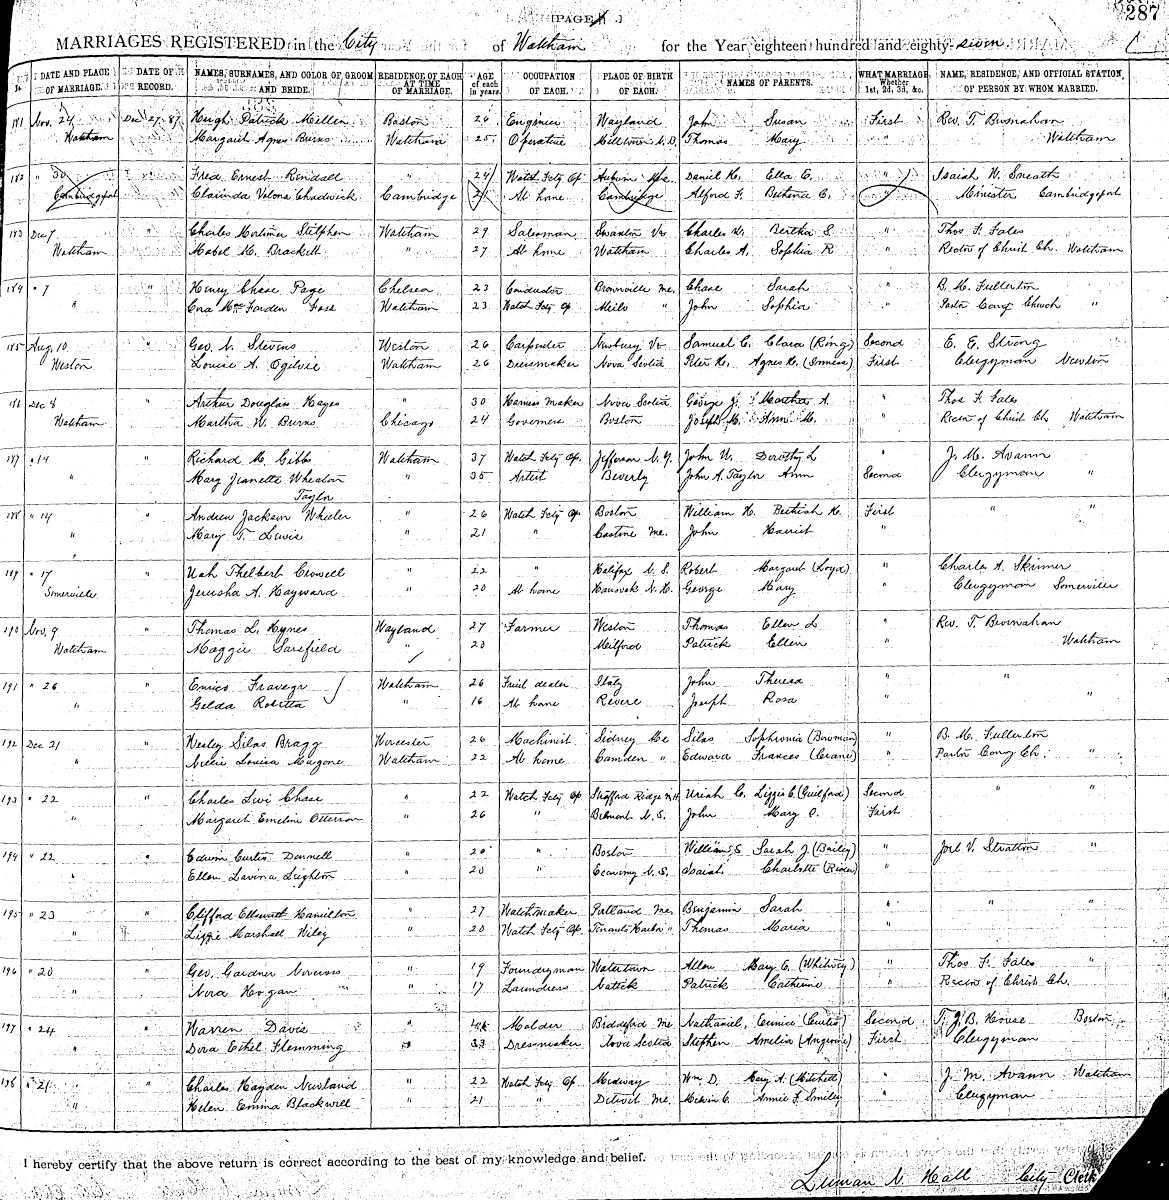 [PAGE .]
287
MARRIAGES REGISTERED in the City of Waltham for the Year eighteen hundred and eighty-seven
No. DATE AND PLACE OF MARRIAGE. DATE OF RECORD. NAMES, SURNAMES, AND COLOR OF GROOM AND BRIDE. RESIDENCE OF EACH AT TIME OF MARRIAGE. AGE of each in years. OCCUPATION OF EACH. PLACE OF BIRTH OF EACH. NAMES OF PARENTS. WHAT MARRIAGE, Whether 1st, 2d, 3d, &c. NAME, RESIDENCE, AND OFFICIAL STATION, OF PERSON BY WHOM MARRIED.
181 Nov. 24 Dec 27. 87 Hugh Patrick Boston 26 Engineer Wayland John Susan First Rev. T. Brosnahan
Waltham Margaret Agnes Burns Waltham 25 Operative Milltown N. B. Thomas Mary " Waltham
182 " 30 " Fred Ernest Kendall " 24 Watch Fcty Op Auburn Me. Daniel H. Ella E. " Isaiah W. Sneath
Cambridgeport Clarinda Velona Chadwick Cambridge 21 At home Cambridge Alford F. C. " Minister Cambridgeport
183 Dec 7 " Charles Mortimer Stelphen Waltham 29 Salesman Swanton Vt Charles W. Bertha S " Thos F. Fales
Waltham Mabel M. Brackett " 27 At home Waltham Charles A. Sophia R " Rector of Christ Ch. Waltham
184 " 7 " Henry Chase Page Chelsea 23 Conductor Brownville Me. Chase Sarah " B. M. Fullerton
" Cora Waltham 23 Watch Fcty Op Milo " John Sophia " Pastor Cong Church "
185 Aug 10 " Geo. N. Stevens Weston 26 Carpenter Newbury Vt Samuel C. Clara (Ring) Second E. E. Strong
Weston Louise A. Ogilvie Waltham 26 Dressmaker Nova Scotia Peter H. Agnes H. (Inness) First Clergyman Newton
186 Dec 8 " Arthur Douglass Hayes " 30 Harness maker Nova Scotia George J. Martha A. " Thos F. Fales
Waltham Martha W. Burns Chicago 24 Governess Boston Joseph M. Ann M. " Rector of Christ Ch. Waltham
187 " 14 " Richard M. Gibbs Waltham 37 Watch Fcty Op. Jefferson N. Y. John W. Dorothy L " J. M. Avann
" Mary Jeanette Wheaton " 35 Artist Beverly John A. Taylor Ann Second Clergyman "
Taylor
188 " 14 " Andrew Jackson Wheeler " 26 Watch Fcty Op Boston William H. Bethiah H. First " "
" Mary T. Lewis " 21 " Castine Me. John Harriet "
189 " 17 " Uah Thelbert Crowell " 22 " Halifax N. S. Robert Margaret (Loyd) " Charles A. Skinner
Somerville Jerusha A. Hayward " 20 At home Hanover N. H. George Mary " Clergyman Somerville
190 Nov. 9 " Thomas L. Hynes Wayland 27 Farmer Weston Thomas Ellen L " Rev. T. Brosnahan
Waltham Maggie Sarsfield " 20 Milford Patrick Ellen " Waltham
191 " 26 " Enrico Fravega Waltham 26 Fruit dealer Italy John Theresa " "
" Gelda Robetta " 16 At home Revere Joseph Rosa " "
192 Dec 21 " Wesley Silas Bragg Worcester 26 Machinist Sidney Me Silas Sophronia (Bowman) " B. M. Fullerton
" Nellie Louisa Mugone Waltham 22 At home Camden " Edward Frances (Crane) " Pastor Cong Ch. "
193 " 22 " Charles Levi Chase " 22 Watch Fcty Op Strafford Ridge N.H. Uriah C. Lizzie C. (Guilford) Second " "
" Margaret Emeline Otterson " 26 " Belmont N. S. John Mary C. First
194 " 22 " Edwin Curtis Donnell " 20 " Boston William S. Sarah J. (Bailey) " Joel V. Stratton "
" Ellen Lavina Leighton " 20 " Economy N. S. Isaiah Charlotte (Rider) "
195 " 23 " Clifford Ellsworth Hamilton " 27 Watchmaker Portland Me. Benjamin Sarah " " "
" Lizzie Marshall Wiley " 20 Watch Fcty Op. Tenants Harbor " Thomas Maria "
196 " 20 " Geo. Gardner Norcross " 19 Foundryman Watertown Allen Mary E. (Whitney) " Thos F. Fales "
" Nora Hogan " 17 Laundress Natick Patrick Catherine " Rector of Christ Ch.
197 " 24 " Warren Davis " Molder Biddeford Me Nathaniel, Eunice (Curtis) Second T. J. B. House Boston
" Dora Ethel Flemming " 33 Dressmaker Nova Scotia Stephen Amelia (Angwine) First Clergyman
198 " 21 " Charles Hayden Newland " 22 Watch Fcty Op. Medway Wm D. Mary A. (Mitchell) " J. M. Avann Waltham
" Helen Emma Blackwell " 21 " Detroit Me. Melvin C. Annie F. Smiley " Clergyman
I hereby certify that the above return is correct according to the best of my knowledge and belief.
Luman N. Hall City Clerk